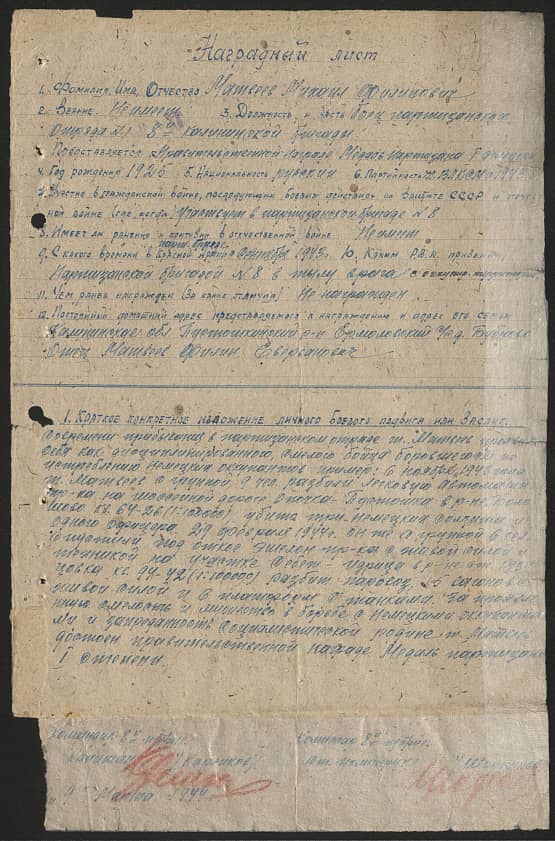 Наградный лист
1. Фамилия, Имя, Отчество Матвеев Михаил Филипович
2. Звание Не имеет 3. Должность и часть боец партизанского
отряда №1 8й Калининской бригады
Предоставляется к Правительственной награде Медаль Партизана I степени
4. Год рождения 1926 5. Национальность русский 6. Партийность чл. ВЛКСМ 1943
7. Участие в гражданской войне, последующих боевых действиях по защите СССР и отечествен-
ной войне (где, когда) Участвует в партизанской бригаде №8
8. Имеет ли ранения и контузии в отечественной войне Не имеет
парт. бригаде
9. С какого времени в Красной Армии с октября 1943 г. 10. Каким Р.В.К. призван
Партизанской бригадой №8 в тылу врага с оккупир. территории
11. Чем ранее награжден (за какие отличия) Не награжден
12. Постоянный домашний адрес представляемого к награждению и адрес его семьи
Калининская обл. Пустошкинский р-н Ермоловский
Отец Матвеев Филип
I. Краткое конкретное изложение личного боевого подвига или заслуг.
Со времени прибытия в партизанском отряде т. Матвеев
себя как дисциплинированного, смелого бойца боровшегося по
истреблению немецких окупантов пример: 6 ноября 1943 года
т. Матвеев с группой 9 чел. разбили легковую автомашину
пр-ка на шоссейной дороге Опочка-Пустошка в р-не
кв. 64-26 (1:100000) убито три немецких солдата и
одного офицера. 29 февраля 1944 г. он же с группой 6 чел.
спустили под откос эшелон пр-ка с живой силой и
техникой на участке Себеж - Идрица в р-не
кв. 94-42 (1:100000) разбит паровоз, 5 вагонов с
живой силой и 6 платформ с танками. За проявлен-
ную смелость и мужество в борьбе с немецкими окупантами
и преданность социалистической родине т. Матвеев
достоен правительственной награде Медаль партизана
I степени.
Командир 8й п/бриг. Комиссар 8й п/бриг.
капитан
"9" Марта 1944